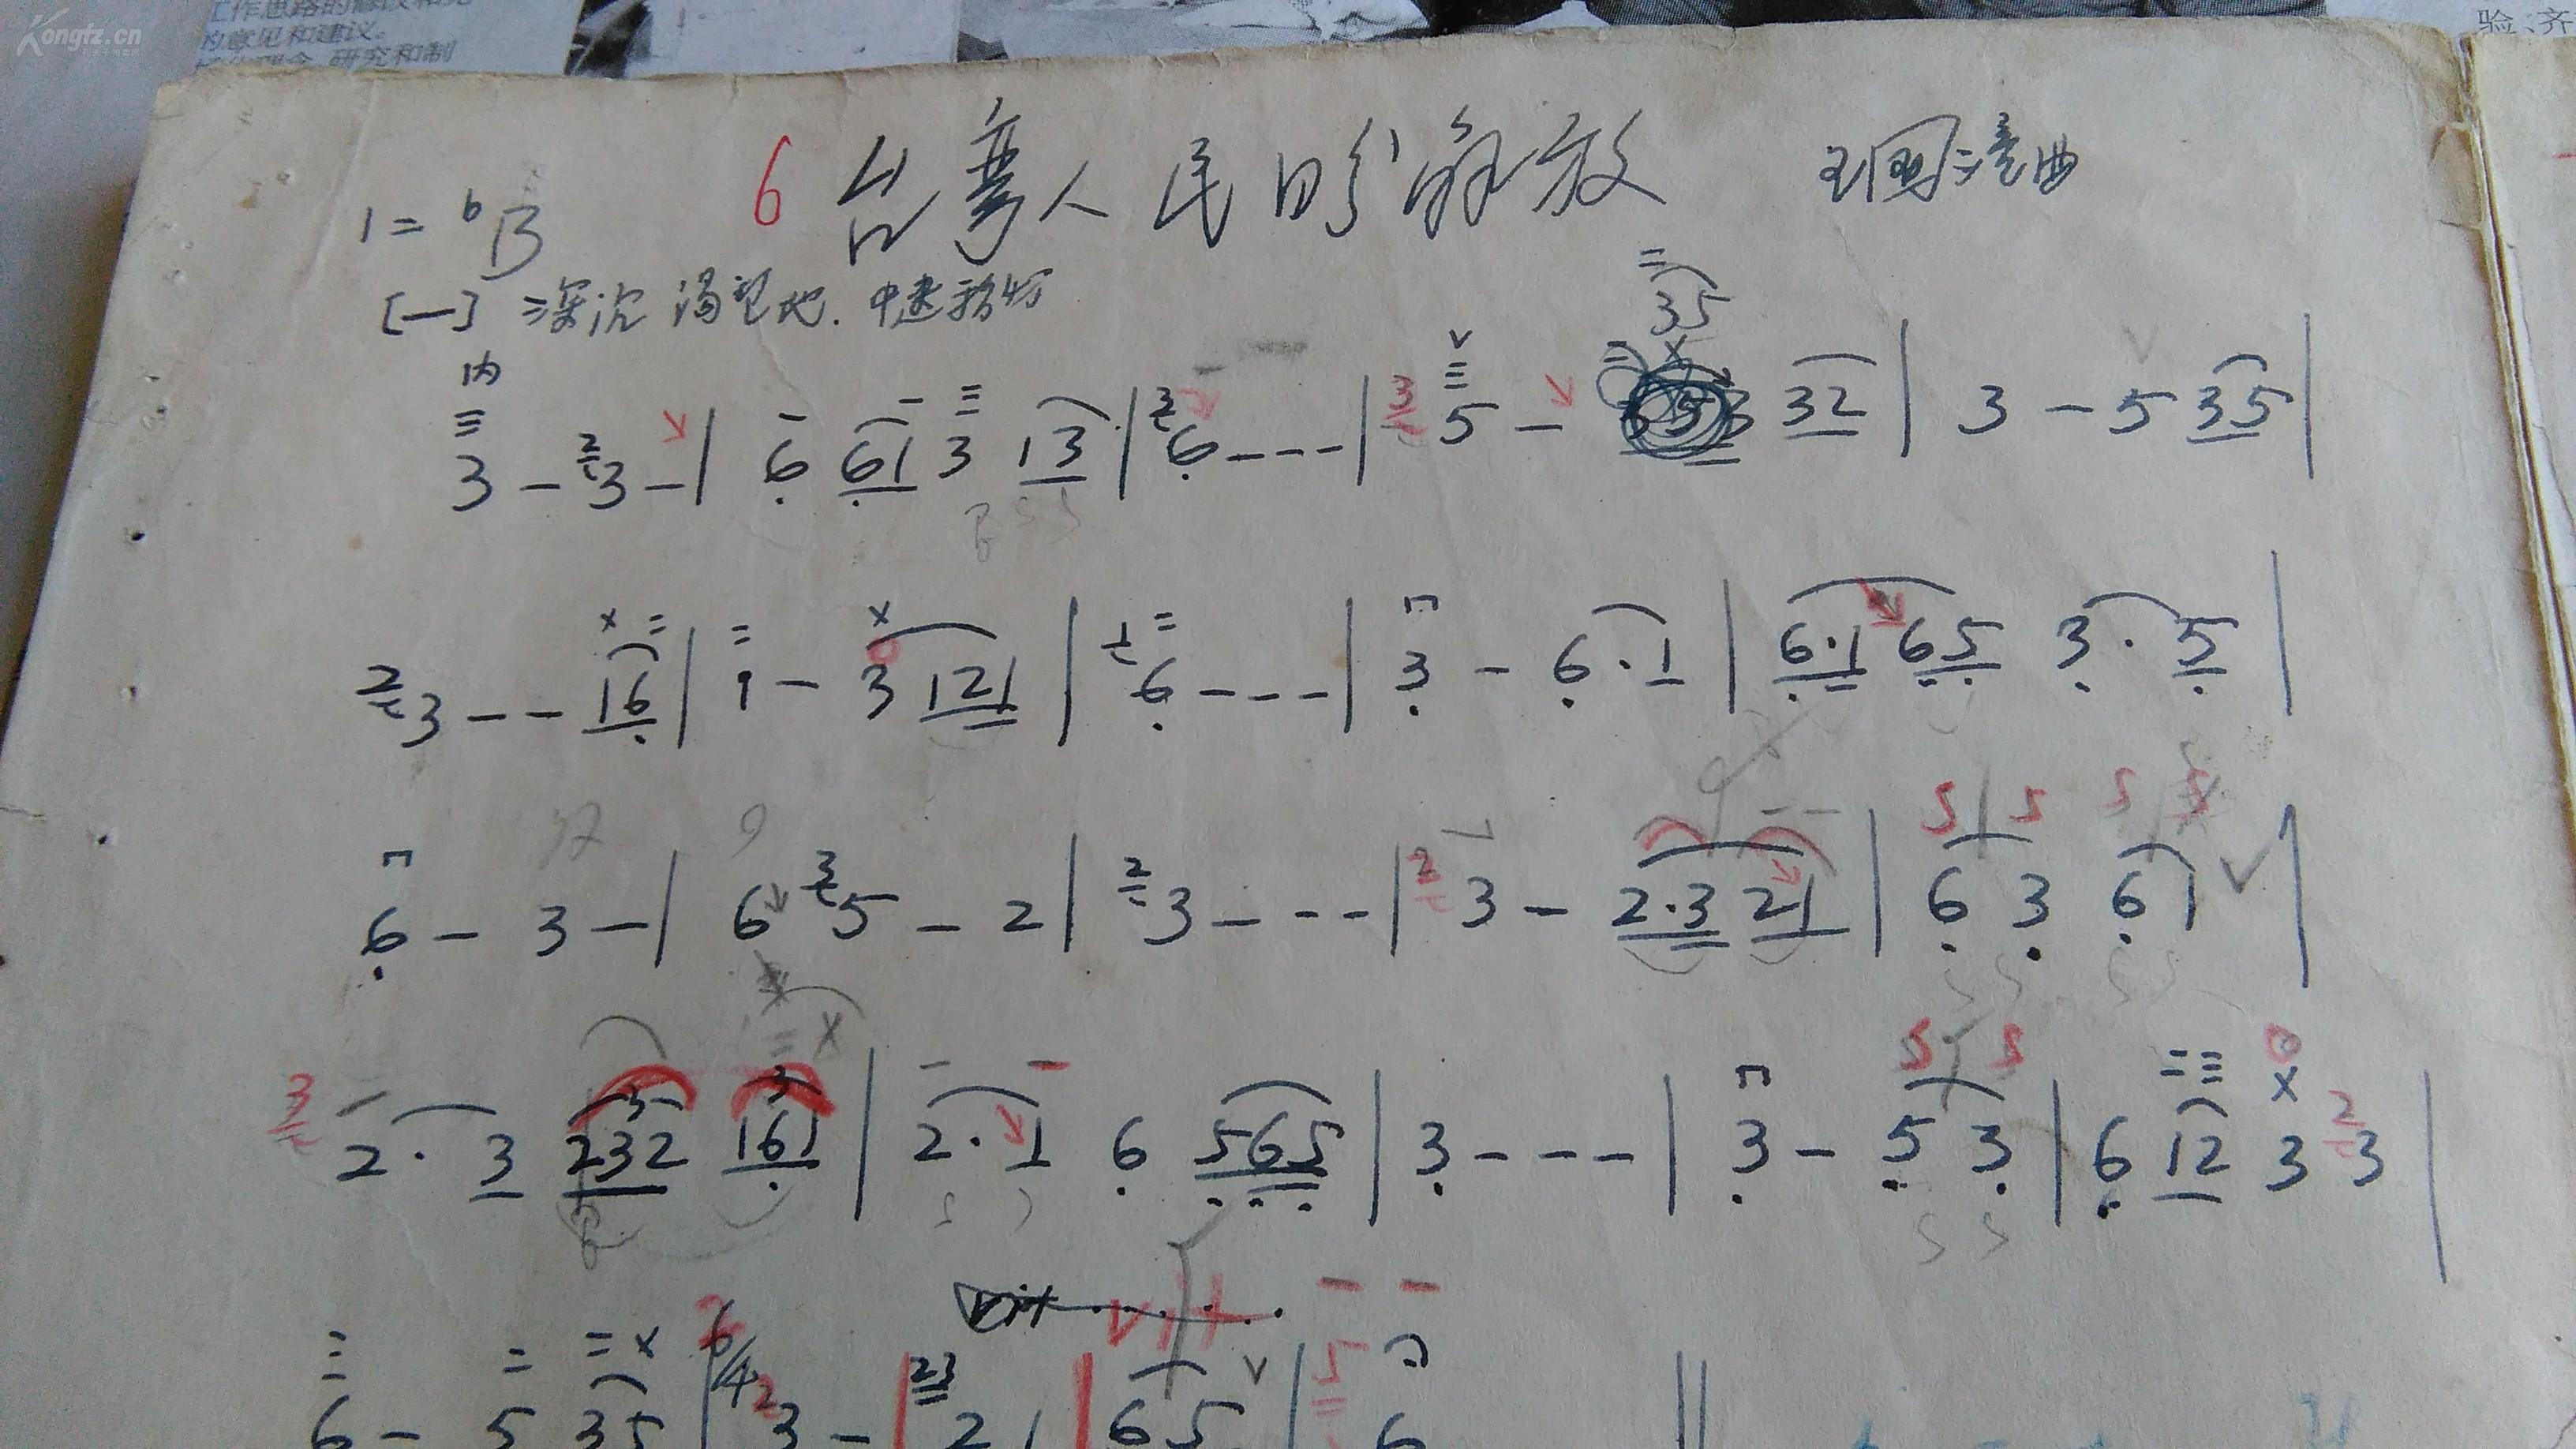 Kongfz.cn
工作思路的修改和完
的意见和建议。
研究和制
验、齐
6 台湾人民盼解放 王国潼曲
1=♭B
[一] 深沉 渴望地. 中速稍慢
内
35
3 - 3 - | 6 61 3 13 | 6 - - - | 5 - 32 | 3 - 5 35 |
3 - - 16 | 1 - 3 121 | 6 - - - | 3 - 6 · 1 | 6·1 65 3 · 5 |
6 - 3 - | 6 5 - 2 | 3 - - - | 3 - 2·3 21 | 6 3 6 1 |
2 · 3 232 161 | 2 · 1 6 565 | 3 - - - | 3 - 5 3 | 6 12 3 3 |
6 - 5 35 | 6/4 3 - 2 1 | 6 5 | 6 ||